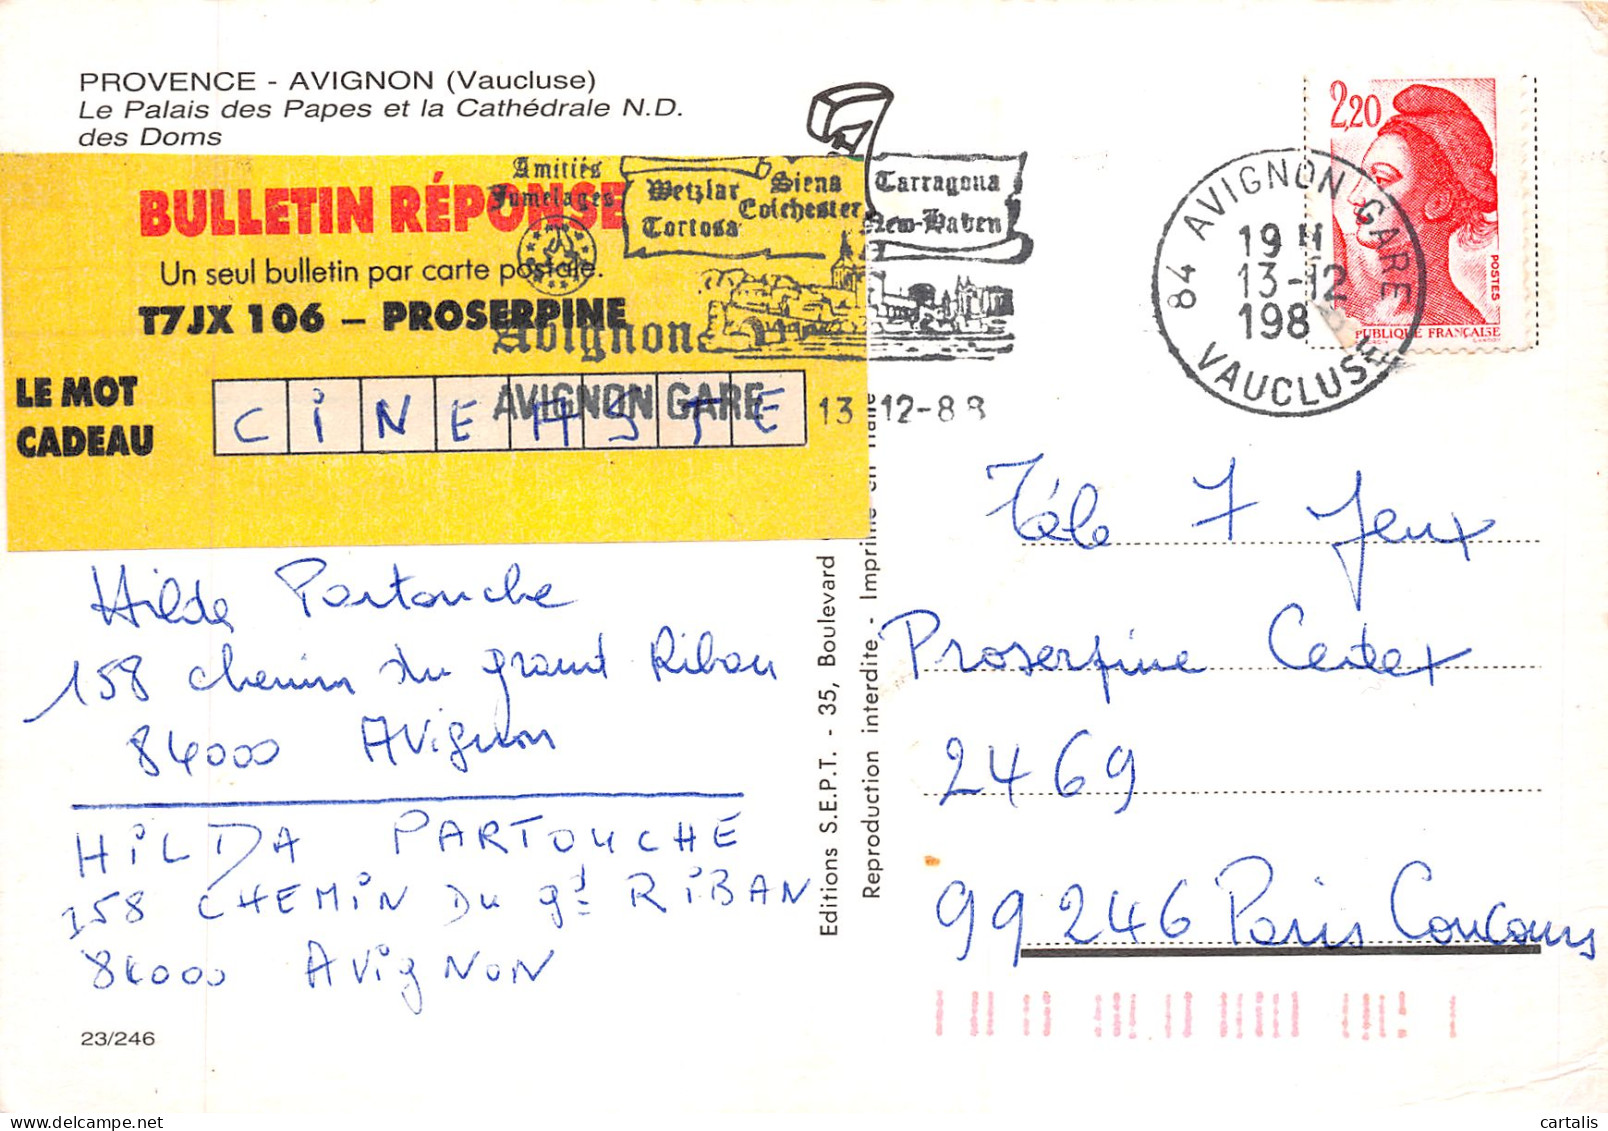 PROVENCE - AVIGNON (Vaucluse)
Le Palais des Papes et la Cathédrale N.D.
des Doms
BULLETIN RÉPONSE
Un seul bulletin par carte postale.
T7JX 106 – PROSERPINE
LE MOT
CADEAU
CiNEASTE
Amitiés
Jumelages
Wetzlar Siena Tarragona
Colchester
Tortosa New-Haven
Avignon
AVIGNON GARE 13 12-88
84 AVIGNON GARE
19 H
13-12
198
VAUCLUSE
2,20
POSTES
REPUBLIQUE FRANÇAISE
Hilda Partouche
158 chemin du grand Riban
84000 Avignon
HiLDA PARTOUCHE
158 CHEMiN Du gd RiBAN
84000 AVigNON
23/246
Editions S.E.P.T. - 35, Boulevard
Reproduction interdite - Imprimé en Italie
Télé 7 Jeux
Proserpine Cedex
2469
99246 Paris Concours
cartalis